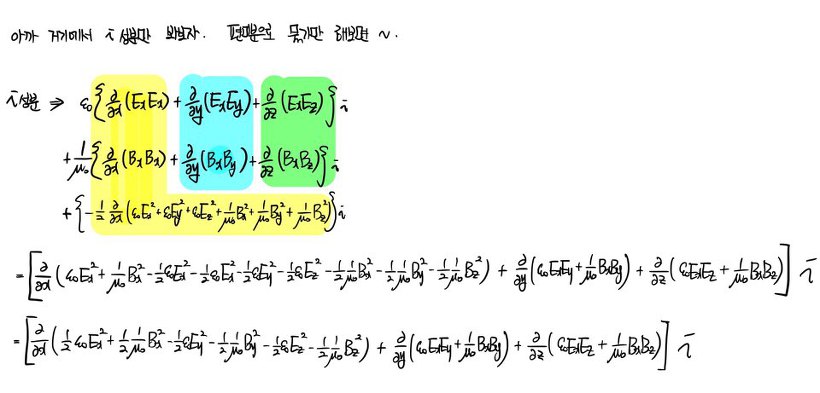 아까 거기에서 i 성분만 봐보자. 편미분으로 묶기만 해보면 ~.
i성분 ⇒ ε₀{∂/∂x(ExEx) + ∂/∂y(ExEy) + ∂/∂z(ExEz)} i
+ 1/μ₀{∂/∂x(BxBx) + ∂/∂y(BxBy) + ∂/∂z(BxBz)} i
+ {-1/2 ∂/∂x(ε₀Ex² + ε₀Ey² + ε₀Ez² + 1/μ₀Bx² + 1/μ₀By² + 1/μ₀Bz²)} i
= [∂/∂x(ε₀Ex² + 1/μ₀Bx² - 1/2ε₀Ex² - 1/2ε₀Ex² - 1/2ε₀Ey² - 1/2ε₀Ez² - 1/2 1/μ₀Bx² - 1/2 1/μ₀By² - 1/2 1/μ₀Bz²) + ∂/∂y(ε₀ExEy + 1/μ₀BxBy) + ∂/∂z(ε₀ExEz + 1/μ₀BxBz)] i
= [∂/∂x(1/2 ε₀Ex² + 1/2 1/μ₀Bx² - 1/2ε₀Ey² - 1/2 1/μ₀By² - 1/2ε₀Ez² - 1/2 1/μ₀Bz²) + ∂/∂y(ε₀ExEy + 1/μ₀BxBy) + ∂/∂z(ε₀ExEz + 1/μ₀BxBz)] i